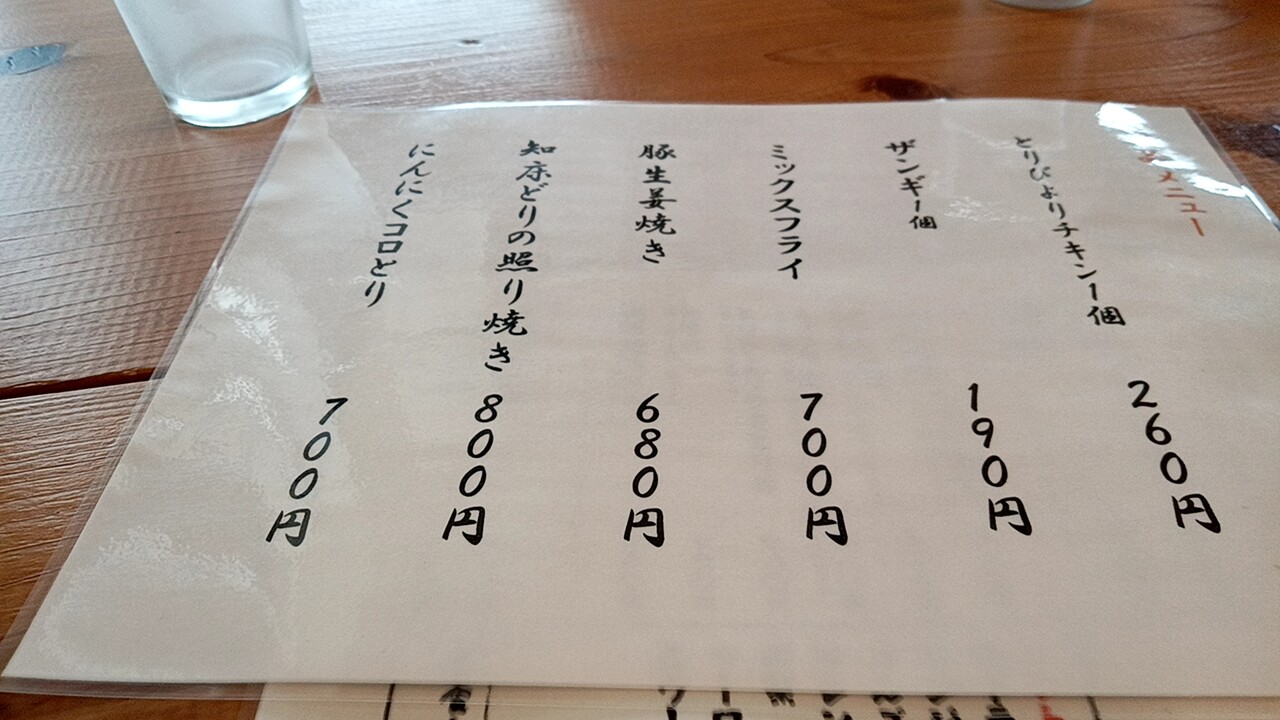 メニュー
とりびよりチキン1個 260円
ザンギ1個 190円
ミックスフライ 700円
豚生姜焼き 680円
知床どりの照り焼き 800円
にんにくコロどり 700円